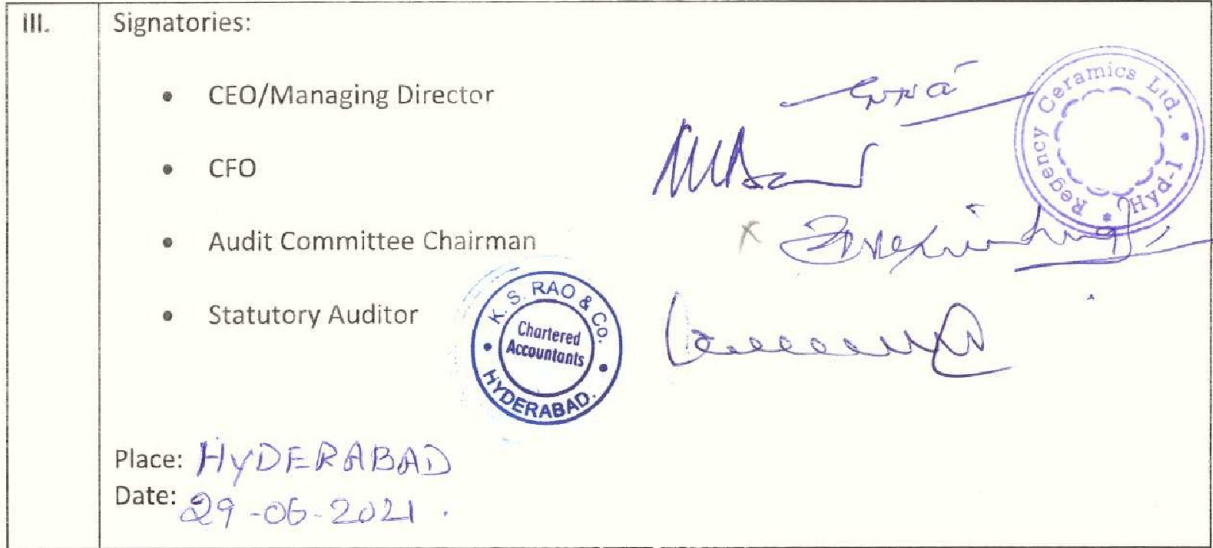 III. Signatories:
• CEO/Managing Director
• CFO
• Audit Committee Chairman
• Statutory Auditor
Regency Ceramics Ltd. • Hyd-1 •
K. S. RAO & Co. • HYDERABAD. •
Chartered
Accountants
Place: HYDERABAD
Date: 29-06-2021.